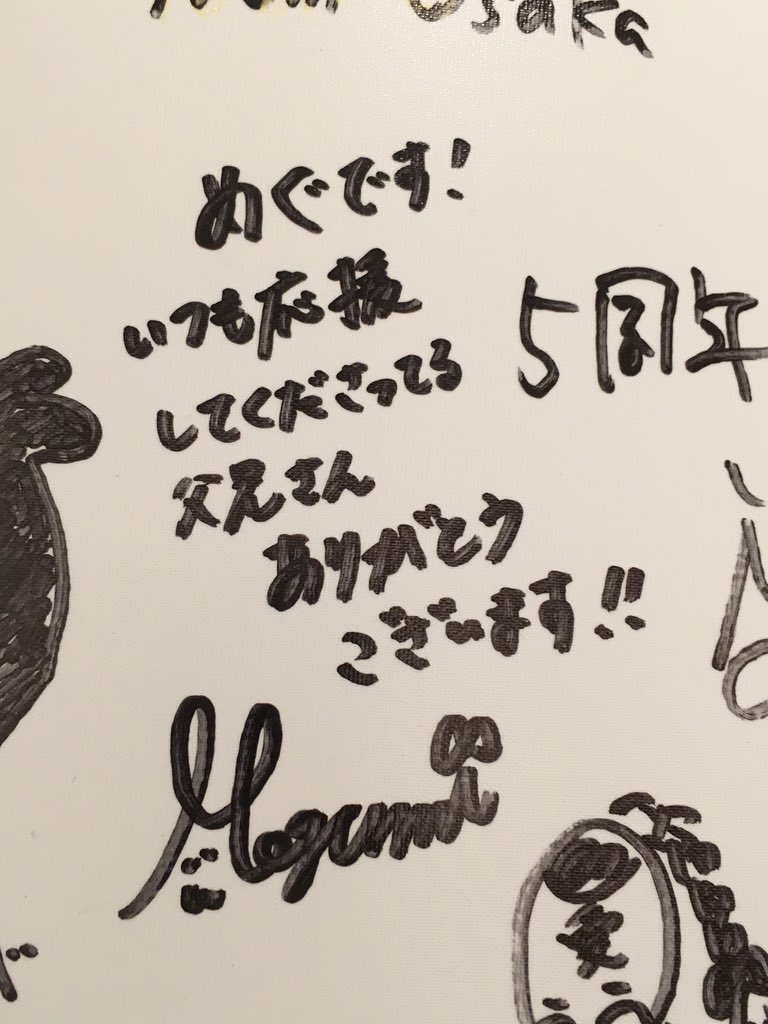 Osaka
めぐです!
いつも応援
してくださってる
父兄さん
ありがとう
ございます!!
5周年
Megumi
の愛